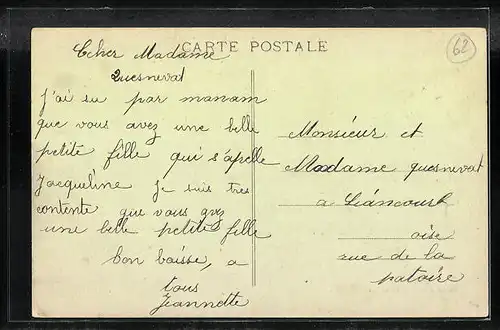 CARTE POSTALE
62
Cher Madame
Quesnevat
J'ai su par maman
que vous avez une belle
petite fille qui s'apelle
Jacqueline Je suis tres
contente que vous avez
une belle petite fille
bon baisse, a
tous
Jeannette
Monsieur et
Madame quesnevat
a Liáncourt
oise
rue de la
pataire